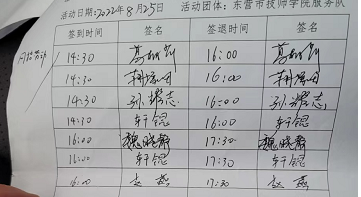 活动日期:2022年8月25日 活动团体:东营市技师学院服务队
签到时间 签名 签退时间 签名
14:30 16:00
14:30 16:00
14:30 孙耀志 16:00 孙耀志
14:30 轩锟 16:00 轩锟
16:00 魏晓静 17:30 魏晓静
16:00 轩锟 17:30 轩锟
16:00 赵燕 17:30 赵燕